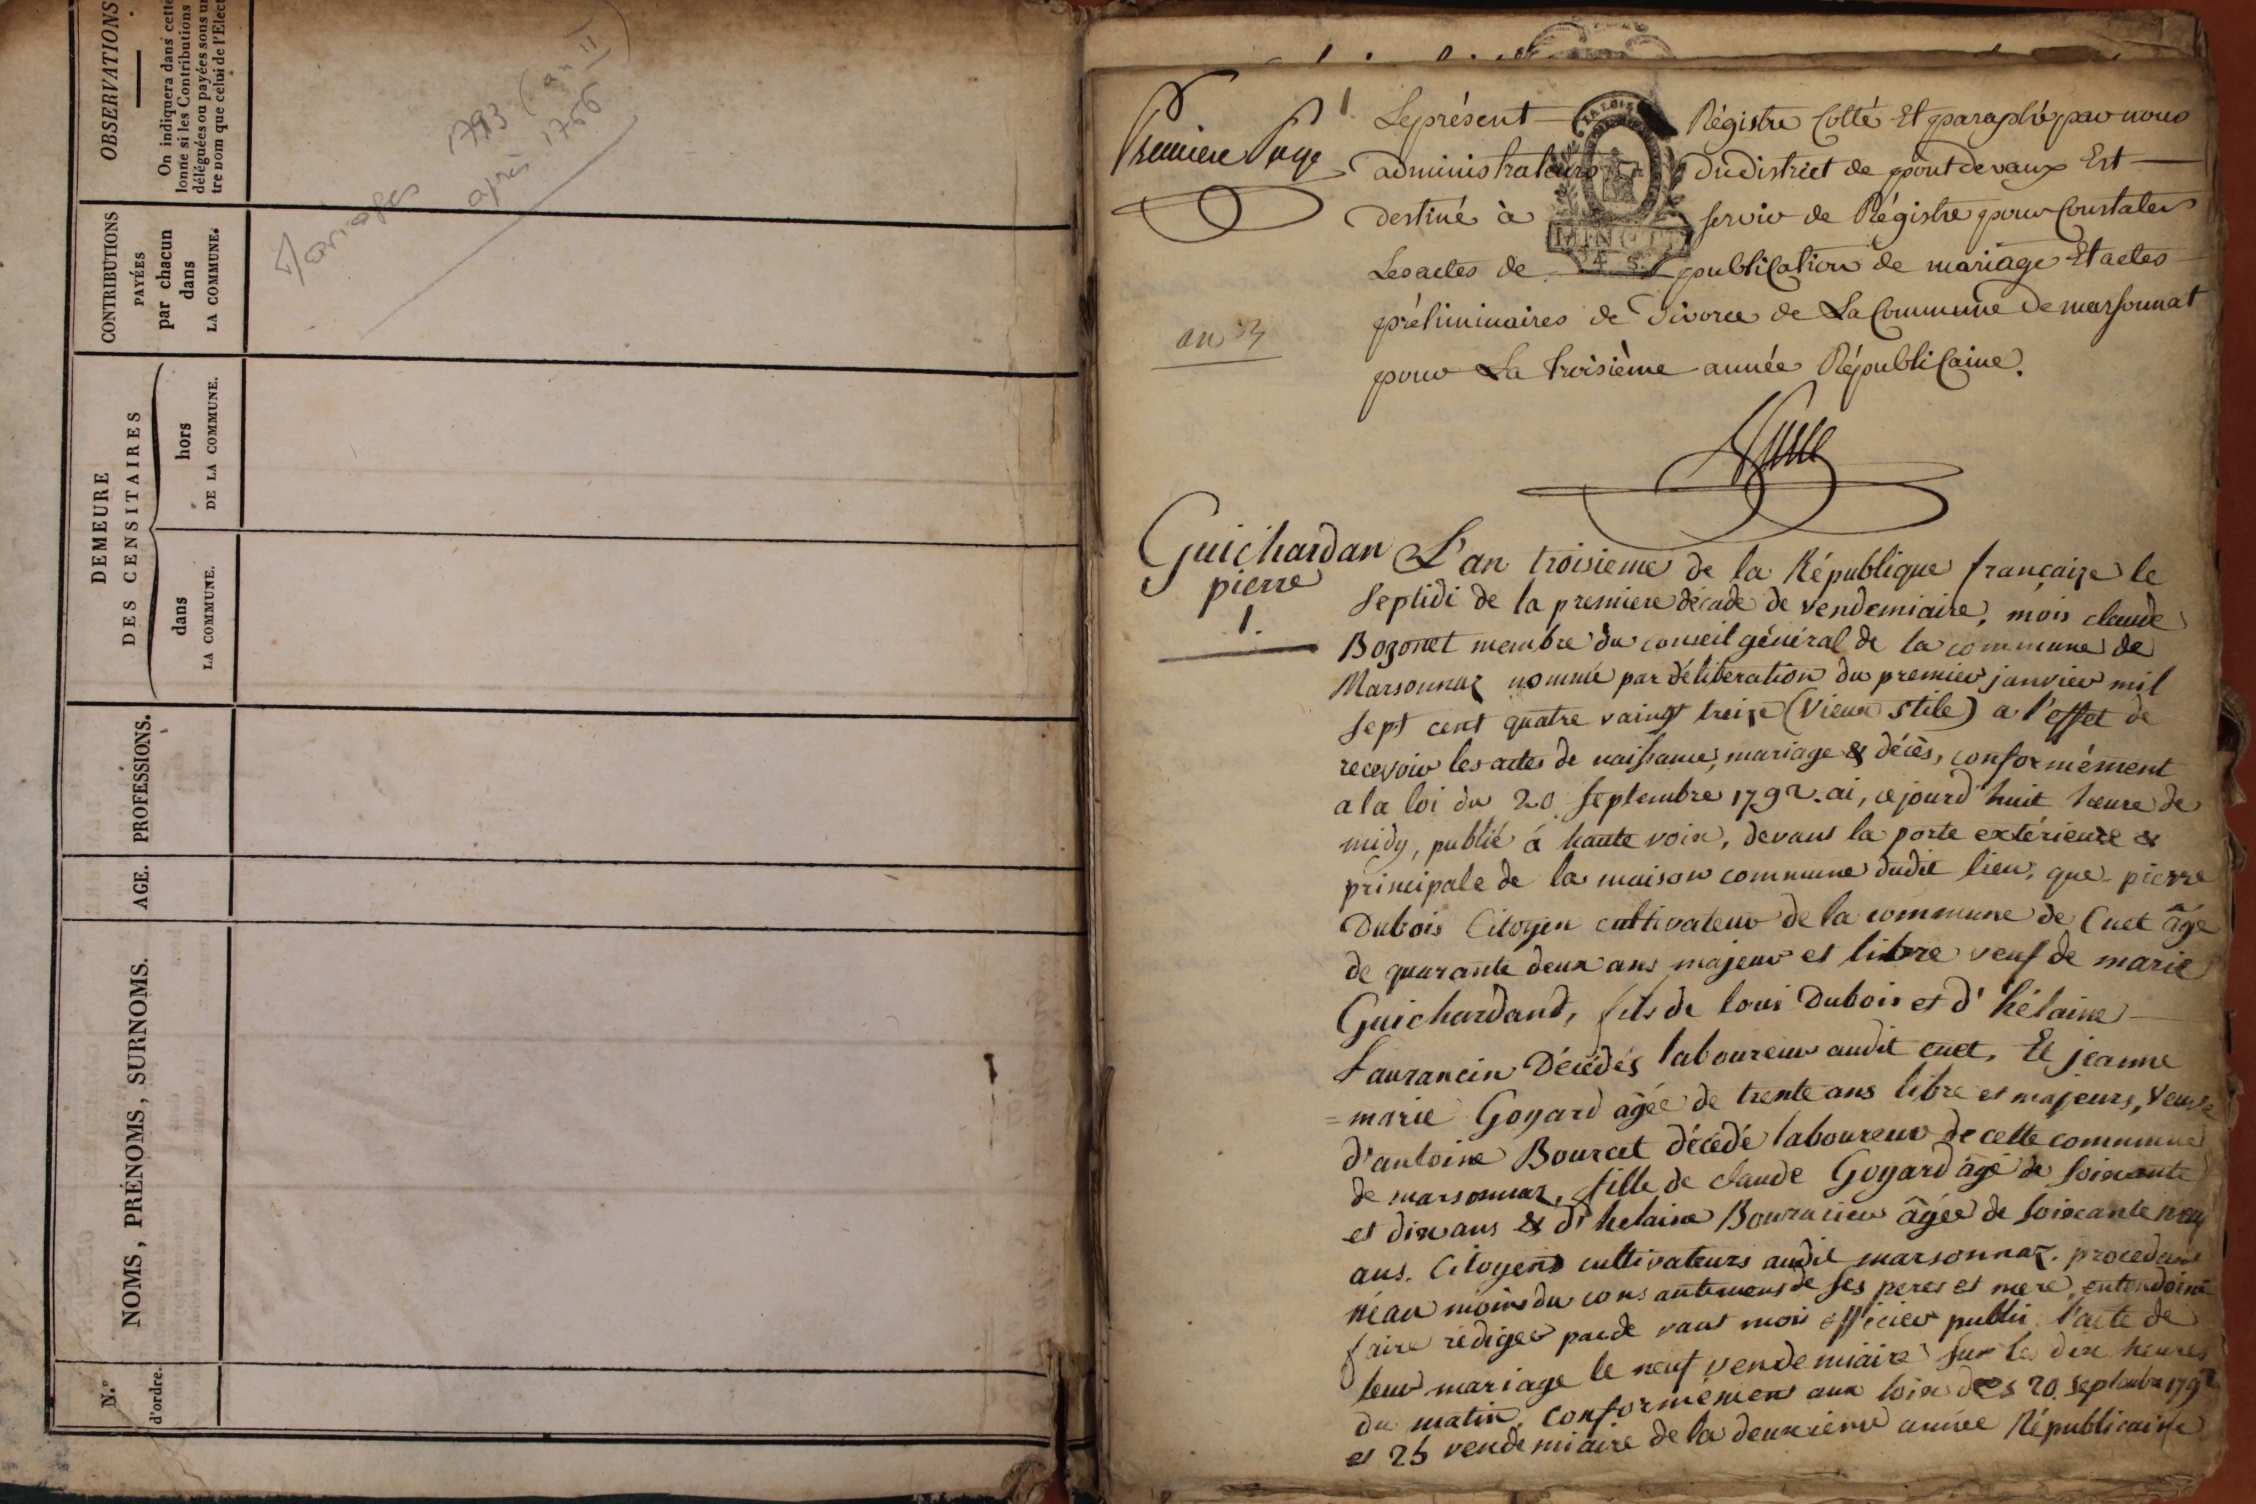 OBSERVATIONS
On indiquera dans cette
lonne si les Contributions
déléguées ou payées sous un
tre nom que celui de l'Elect
CONTRIBUTIONS
PAYÉES
par chacun
dans
LA COMMUNE.
DEMEURE
DES CENSITAIRES
hors
DE LA COMMUNE.
dans
LA COMMUNE.
PROFESSIONS.
AGE.
NOMS, PRÉNOMS, SURNOMS.
N.°
d'ordre.
Mariages
1793 (an II)
après 1766
Premiere Page
1
Le présent Régistre Cotté Et paraphé par nous
administrateurs du district de pont devaux Est
destiné à servir de Régistre pour Constater
Les actes de publication de mariage Et actes
préliminaires de divorce de La Commune de marsonnat
pour La troisième année Républicaine.
an 3
Guichardan
pierre
1.
L'an troisieme de la République françaize le
septidi de la premiere décade de vendemiaire, mois claude
Bozonet membre du conseil général de la commune de
Marsonnaz nommé par déliberation du premier janvier mil
sept cent quatre vaingt treize (Vieux stile) a l'effet de
recevoir les actes de naissance, mariage & décès, conformément
a la loi du 20 septembre 1792. ai, cejourd'huit heure de
midy, publié á haute voix, devant la porte extérieure &
principale de la maison commune dudit lieu, que pierre
Dubois Citoyen cultivateur de la commune de Cuet âge
de quarante deux ans majeur et libre veuf de marie
Guichardand, fils de loui Dubois et d'hélaine
Laurancin Décédés laboureur audit cuet, Et jeanne
= marie Goyard âgée de trente ans libre et majeurs, veuve
d'antoine Bourcet décédé laboureur de cette commune
de marsonnaz, fille de claude Goyard âgé de soixante
et dix ans & d'helaine Bourancien âgée de soixante neuf
ans. Citoyens cultivateurs audit marsonnaz. procedant
néau moins du consantemens de ses peres et mere, entendoint
faire rédiger pardevant moi officier public l'acte de
leur mariage le neuf vendemiaire sur les dix heures
du matin, conformément aux loix des 20. septembre 1792
et 25 vendemiaire de la deuxieme année Républicaine